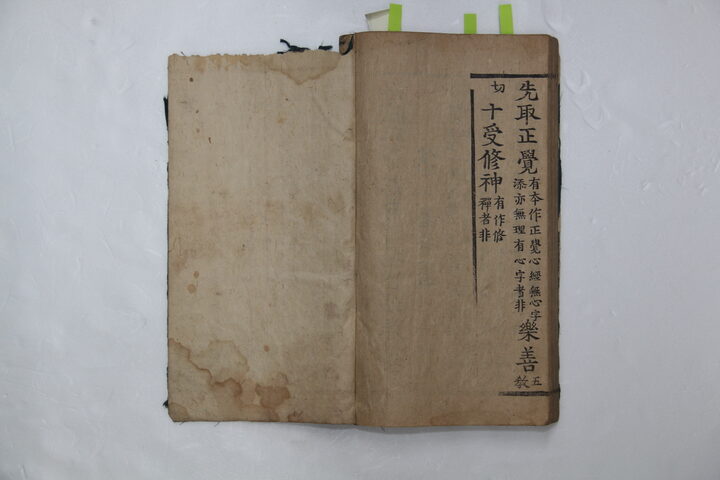 先取正覺
有夲作正覺心經無心字
添亦無理有心字者非
樂善
五
教
切
十受修神
有作修
禪者非